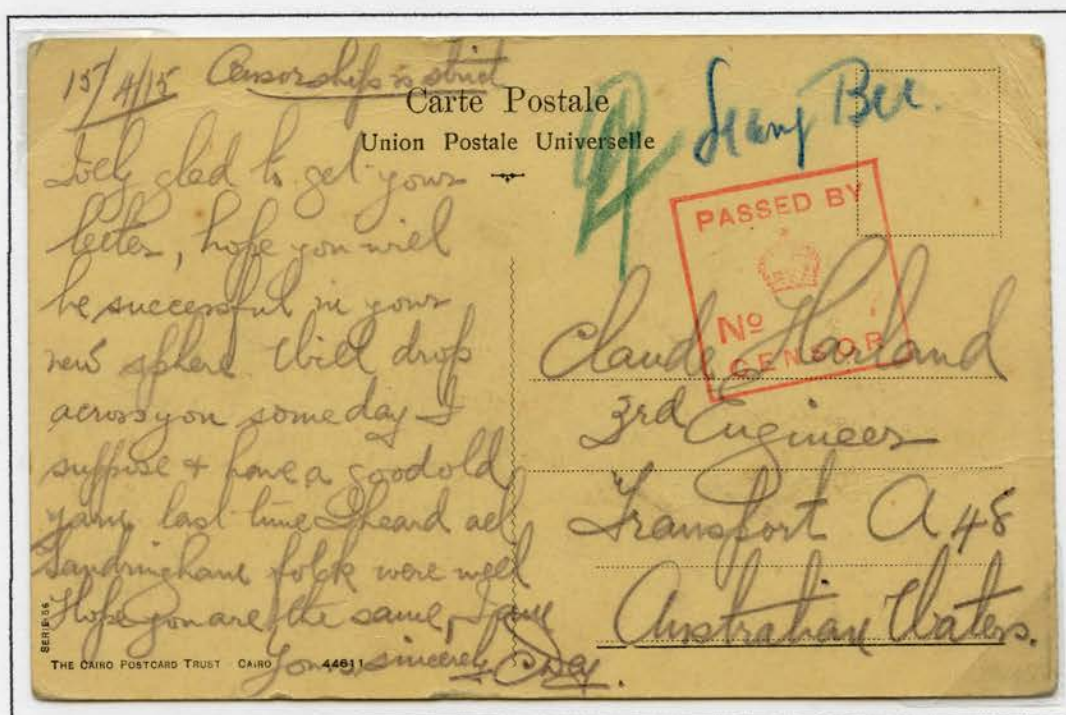 15/4/15 Censorship is strict
Carte Postale
Union Postale Universelle
Seang Bee.
PASSED BY
No
CENSOR
glad to get your
letter, hope you will
be successful in your
new sphere Will drop
across you some day I
suppose & have a good old
yarn last time I heard all
Sandringham folk were well
Hope you are the same, I am
Yours sincerely
Claude Harland
3rd Engineer
Transport A 48
Australian Waters.
SERIE 56
THE CAIRO POSTCARD TRUST CAIRO 44611